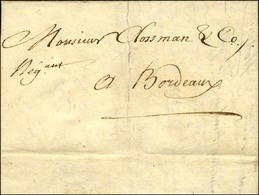 Monsieur Closman & Co/.
Neg.ant
A Bordeaux